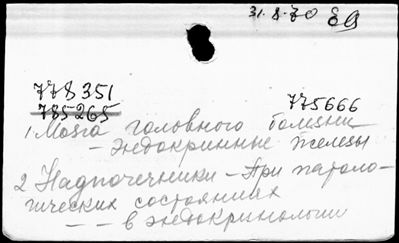 31.8.70
778351
785265
775666
1 Мозга головного болезни
— Эндокринные железы
2 Надпочечники – При патоло-
гических состояниях
— — в эндокринологии